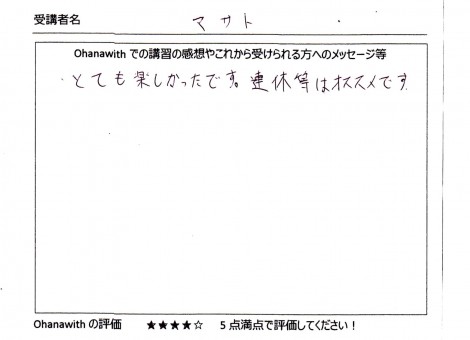 受講者名 マサト
Ohanawith での講習の感想やこれから受けられる方へのメッセージ等
・とても楽しかったです。連休等はオススメです
Ohanawith の評価 ★★★★☆ 5 点満点で評価してください！